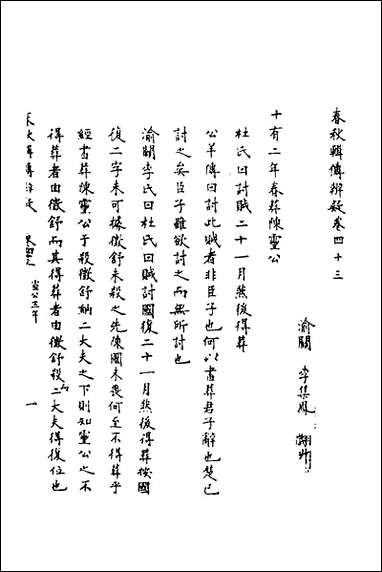 春秋輯傳辨疑卷四十三
渝關 李集鳳 翽升
十有二年春葬陳靈公
杜氏曰討賊二十一月然後得葬
公羊傳曰討此賊者非臣子也何以書葬君子辭也楚已
討之矣臣子雖欲討之而無所討也
渝關李氏曰杜氏曰賊討國復二十一月然後得葬按國
復二字未可據徵舒未殺之先陳國未喪何至不得葬乎
經書葬陳靈公于殺徵舒納二大夫之下則知靈公之不
得葬者由徵舒而其得葬者由徵舒殺而二大夫得復位也
春秋輯傳辨疑 宣公十二年 一